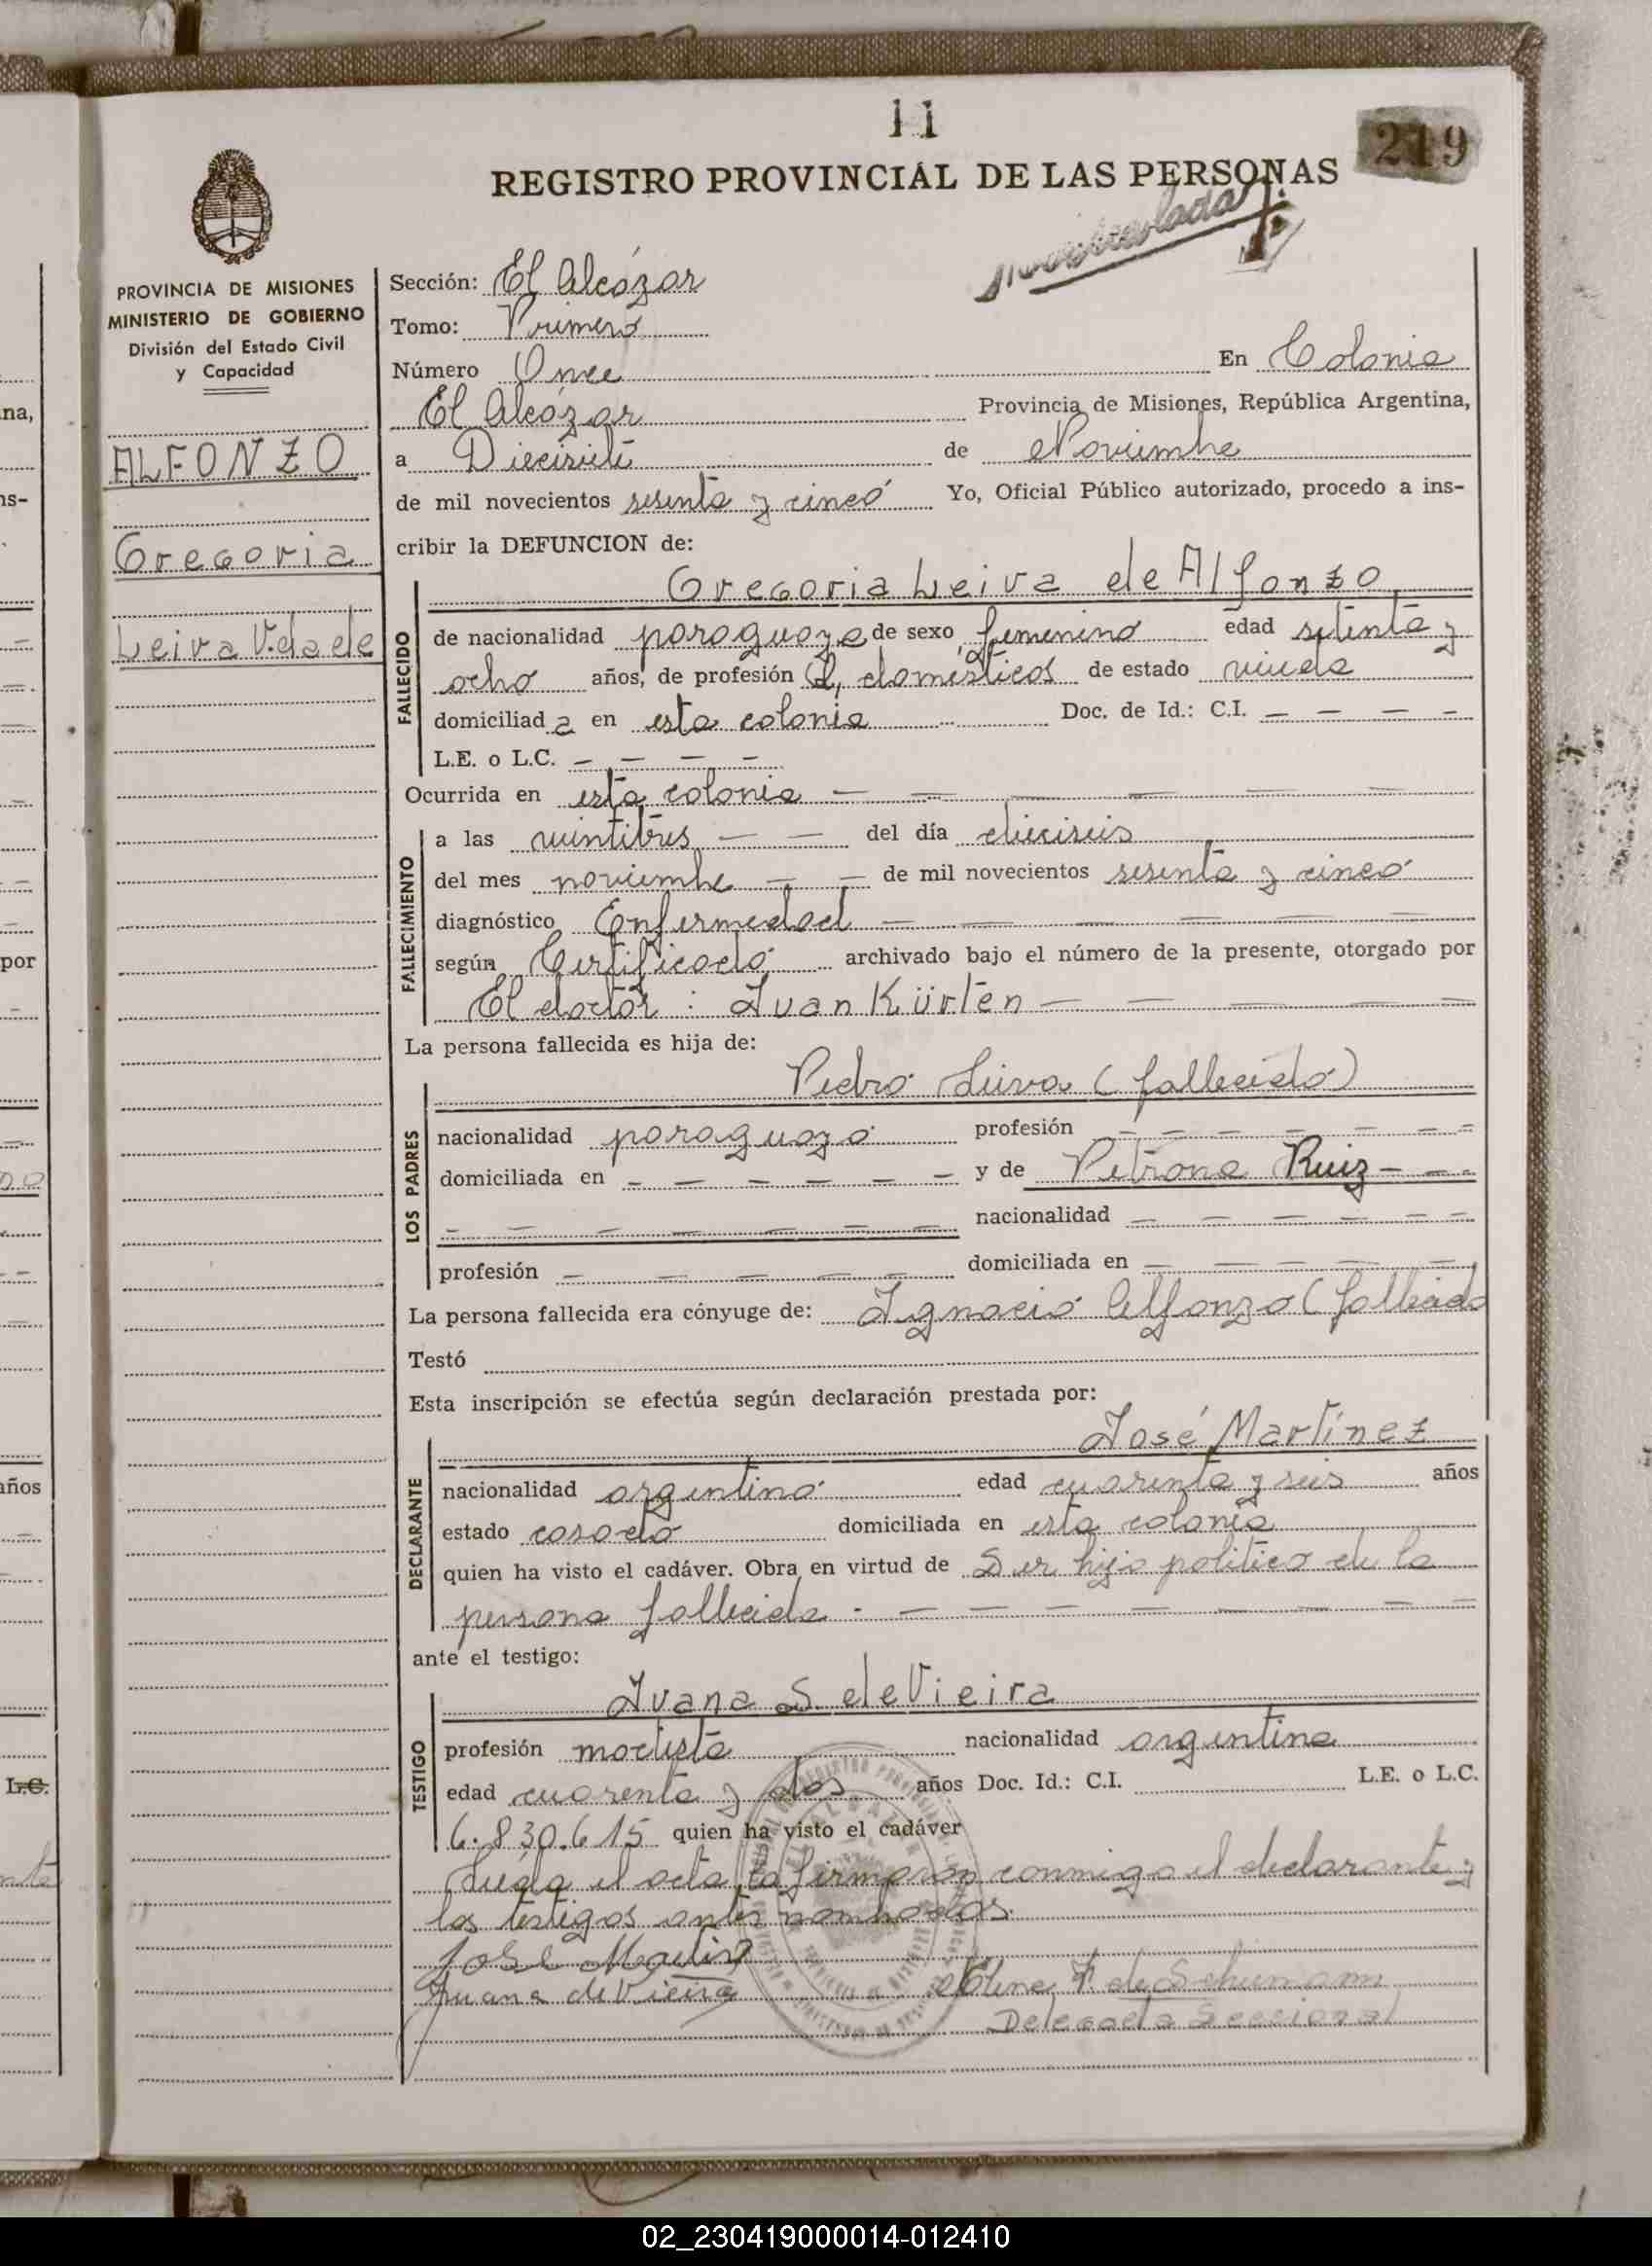 11
219
REGISTRO PROVINCIAL DE LAS PERSONAS
PROVINCIA DE MISIONES
MINISTERIO DE GOBIERNO
División del Estado Civil
y Capacidad
ALFONZO
Gregoria
Leiva V. da de
Sección: El Alcázar
Tomo: Primero
Número Once En Colonia
El Alcázar Provincia de Misiones, República Argentina,
a Diecisiete de Noviembre
de mil novecientos sesenta y cinco Yo, Oficial Público autorizado, procedo a ins-
cribir la DEFUNCION de:
Gregoria Leiva de Alfonzo
FALLECIDO
de nacionalidad paraguaya de sexo femenino edad setenta y
ocho años, de profesión Q. domésticos de estado viuda
domiciliad a en esta colonia Doc. de Id.: C.I. — — — —
L.E. o L.C. — — — —
Ocurrida en esta colonia — — — — — —
FALLECIMIENTO
a las veintitres — — del día dieciseis
del mes noviembre — — de mil novecientos sesenta y cinco
diagnóstico Enfermedad — — — — — —
según Certificado archivado bajo el número de la presente, otorgado por
El doctor : Juan Kürten — — — — —
La persona fallecida es hija de:
Pedro Leiva (fallecido)
LOS PADRES
nacionalidad paraguayo profesión — — — — — — —
domiciliada en — — — — — — y de Petrona Ruiz — — -
— — — — — — — nacionalidad — — — — — —
profesión — — — — — domiciliada en — — — — —
La persona fallecida era cónyuge de: Ignacio Alfonzo (fallecido
Testó
Esta inscripción se efectúa según declaración prestada por:
José Martínez
DECLARANTE
nacionalidad argentino edad cuarenta y seis años
estado casado domiciliada en esta colonia
quien ha visto el cadáver. Obra en virtud de Ser hijo politico de la
persona fallecida - — — — — — — — —
ante el testigo:
Juana S. de Vieira
TESTIGO
profesión modista nacionalidad argentina
edad cuarenta y dos años Doc. Id.: C.I. L.E. o L.C.
6.830.615 quien ha visto el cadáver
Leída el acta, la firmaron conmigo el declarante y
los testigos antes nombrados.
José Martinez
Juana de Vieira
F. de Schumann
Delegada Seccional
na,
ns-
por
años
L.C.
02_230419000014-012410